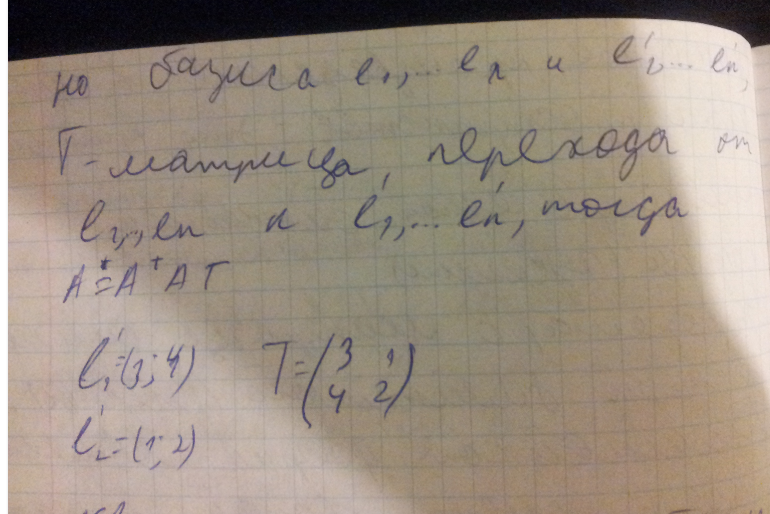 но базиса e₁,... eₙ и e'₁,... e'ₙ,
T-матрица, перехода от
e₁,.,eₙ к e'₁,... e'ₙ, тогда
A*=A⁺AT
e'₁=(3; 4) T=(3 1
4 2)
e'₂=(1; 2)